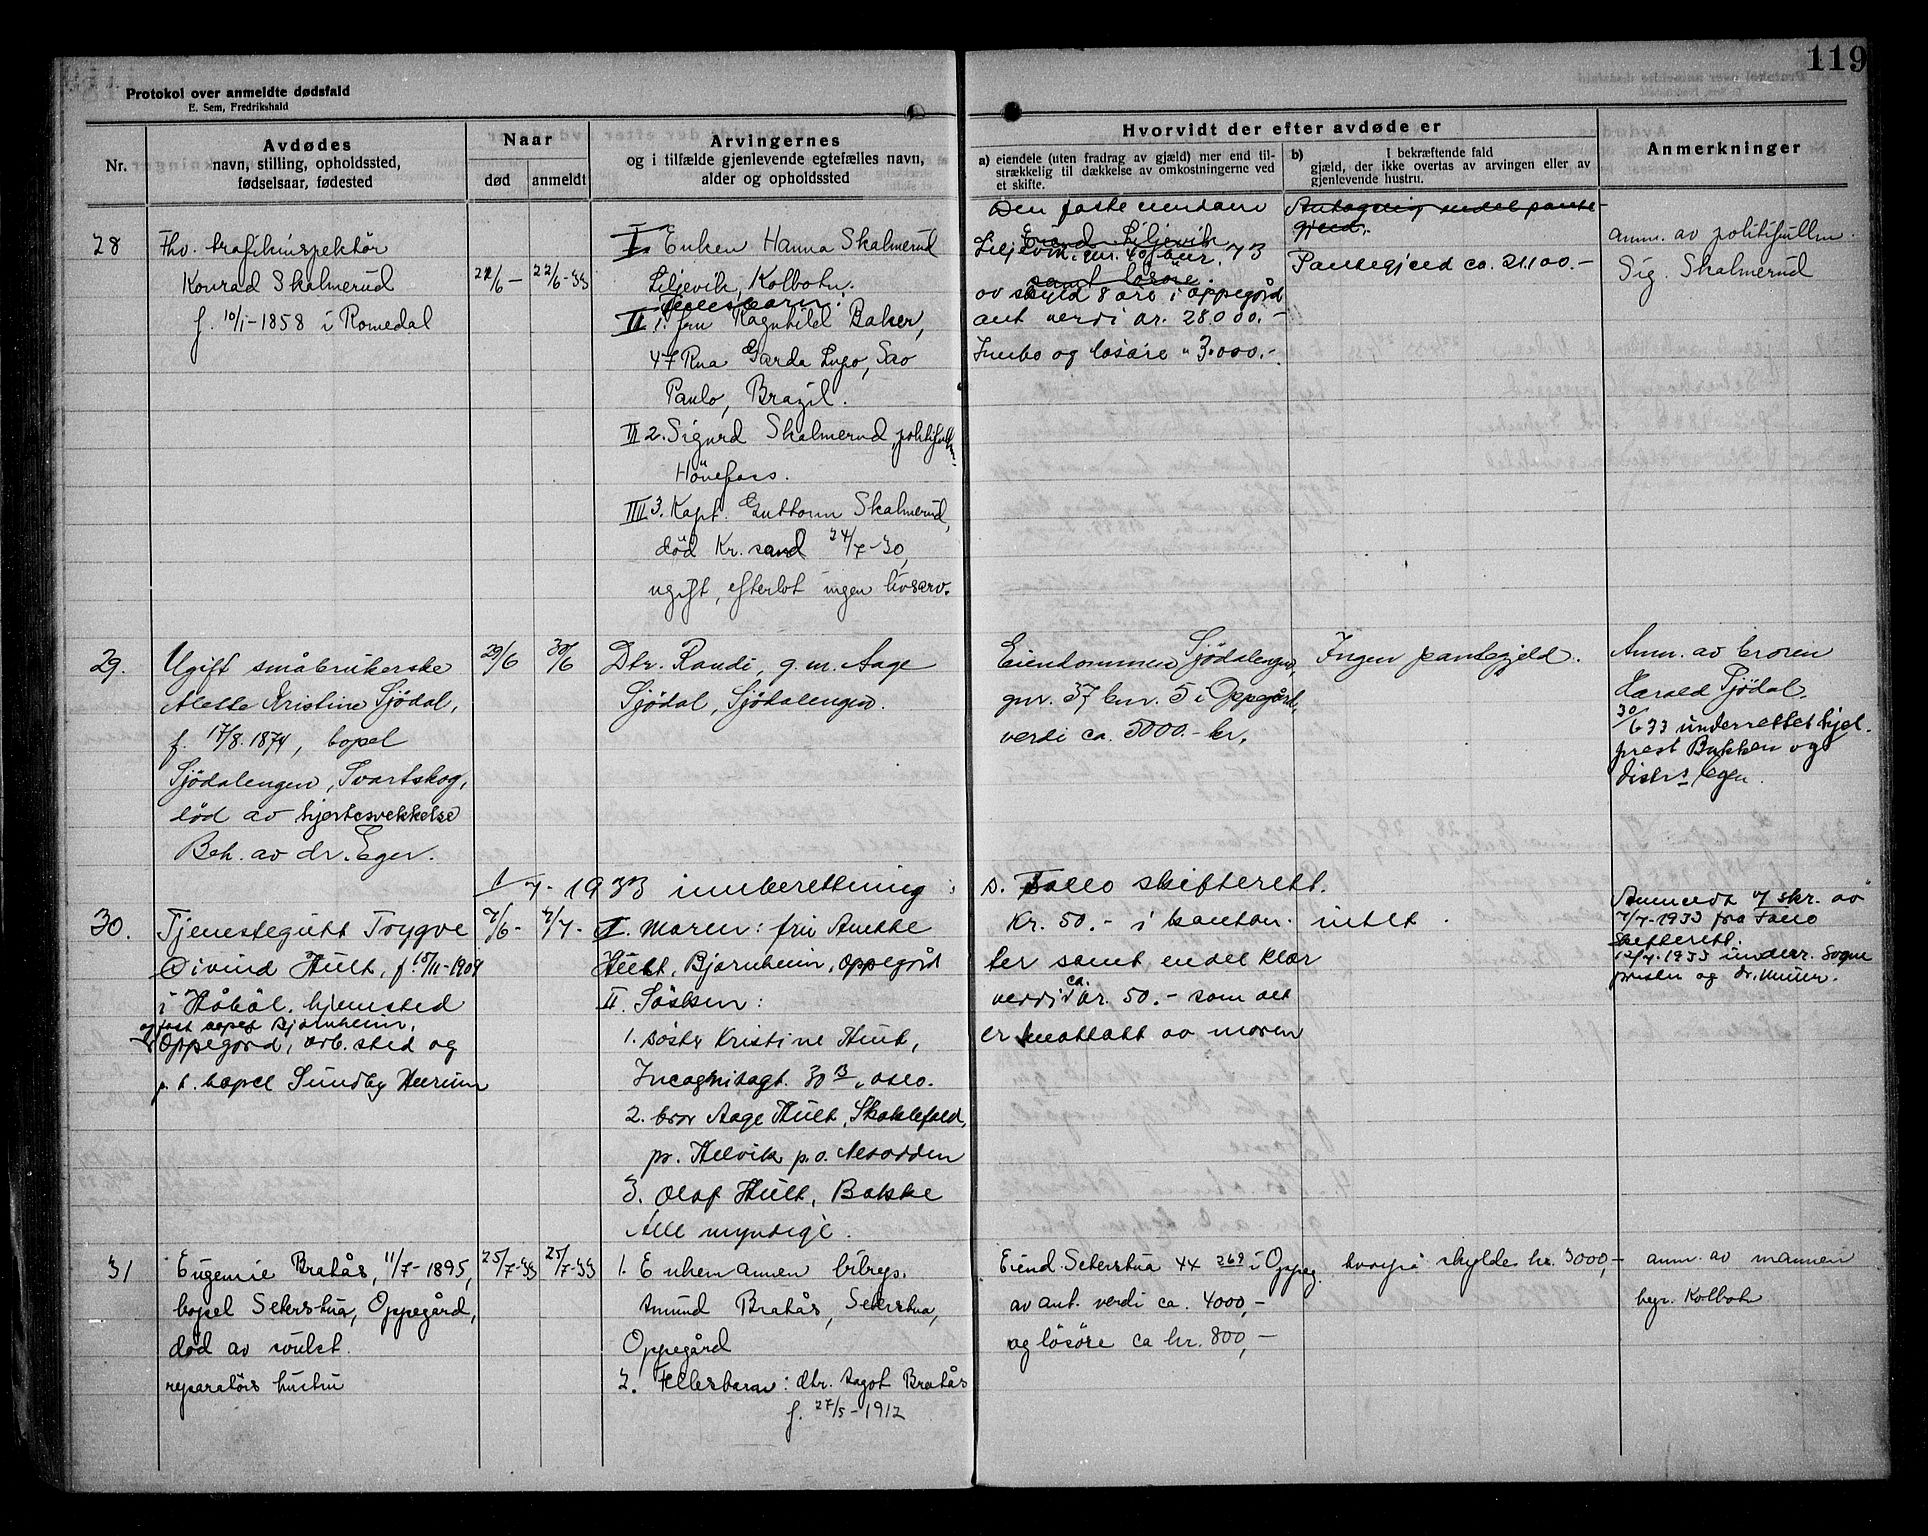 119
Protokol over anmeldte dødsfald
E. Sem, Fredrikshald
Nr.
Avdødes
navn, stilling, opholdssted,
fødselsaar, fødested
Naar
død
anmeldt
Arvingernes
og i tilfælde gjenlevende egtefælles navn,
alder og opholdssted
Hvorvidt der efter avdøde er
a) eiendele (uten fradrag av gjæld) mer end til-
strækkelig til dækkelse av omkostningerne ved
et skifte.
b) I bekræftende fald
gjæld, der ikke overtas av arvingen eller av
gjenlevende hustru.
Anmerkninger
28
Fhv. trafikinspektør
Konrad Skalmerud
f. 10/1-1858 i Romedal
21/6-
22/6-33
I. Enken Hanna Skalmerud
Liljevik, Kolbotn.
Fellesbarn:
II 1. fru Ragnhild Baker,
47 Rua Garda Lugo, Sao
Paulo, Brazil.
III 2. Sigurd Skalmerud, politifullm.
Hönefoss.
IIII 3. Kapt. Guttorm Skalmerud,
død Kr. sand 24/7-30,
ugift, efterlot ingen livsarv.
Den faste eiendom
Eiend. Liljevik
Liljevik, gnr. 40 bnr. 73
samt løsøre
av skyld 8 øre i Oppegård
ant verdi kr. 28.000.-
Innbo og løsøre " 3.000.-
Antagelig endel pante-
gjeld.
Pantegjeld ca. 21.100.-
anm. av politifullm.
Sig. Skalmerud
29.
Ugift småbrukerske
Alette Kristine Sjödal,
f. 17/8.1874, bopel
Sjödalengen, Svartskog,
död av hjertesvekkelse
Beh. av dr. Eger.
29/6
30/6
Dtr. Randi, g.m. Aage
Sjödal, Sjödalengen.
Eiendommen Sjödalengen,
gnr. 37 bnr. 5 i Oppegård,
verdi ca. 5000.- kr.
Ingen pantegjeld.
Anm. av broren
Harald Sjödal.
30/6 33 underrettet hjel.
prest Bakken og
distr.s Eger.
1/7-1933 innberetning s. Follo skifterett.
30.
Tjenestegutt Trygve
Eivind Hult, f. 15/11-1909
i Håböl. hjemsted
og fast bopel Bjørnheim,
Oppegård, arb. sted og
p.t. bopel Sundby Hurum
7/6-
7/7-
I. Moren: fru Anette
Hult, Bjørnheim, Oppegård
II Søsken:
1. søster Kristine Hult,
Incognitogt. 30 B, Oslo.
2. bror Aage Hult, Skoklefald,
pr. Hellvik p.o. Nesodden
3. Olaf Hult, Bakke
Alle myndige.
Kr. 50.- i kontan-
ter samt endel klær
verdi ca. kr. 50.- som alt
er mottatt av moren
intet
Anmeldt v/ skr. av
7/7-1933 fra Follo
skifterett.
12/7-1933 underr. Sogne
presten og dr.
31
Eugenie Bratås, 11/7-1895,
bopel Seterstua, Oppegård,
død av svulst.
reparatørs hustru
25/7-33
25/7-33
1. Enkemannen bilrep.
Amund Bratås, Seterstua,
Oppegård
2. Fellesbarn: dtr. Aagot Bratås
f. 27/5-1912
Eiend. Seterstua 44 269 i Oppeg.
av ant. verdi ca. 4000,-
og lösöre ca kr. 800,-
hvorpå skyldes kr. 3000,-
anm. av mannen
Kolbotn